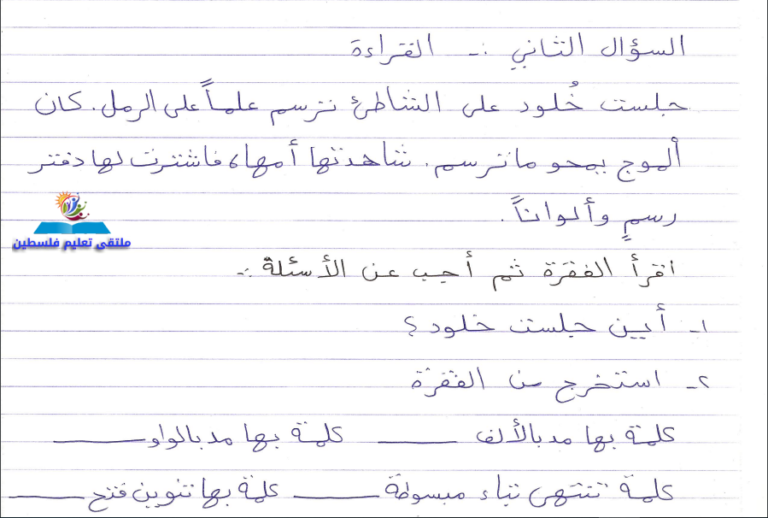 السؤال الثاني :- القراءة
جلست خُلود على الشاطئ ترسم علماً على الرمل. كان
ألموج يمحو ما ترسم. شاهدتها أمها، فاشترت لها دفتر
رسمٍ وألواناً.
ملتقى تعليم فلسطين
اقرأ الفقرة ثم أجب عن الأسئلة :-
١- أين جلست خلود ؟
٢- استخرج من الفقرة
كلمة بها مد بالألف ______ كلمة بها مد بالواو ______
كلمة تنتهي بتاء مبسوطة ______ كلمة بها تنوين فتح ______